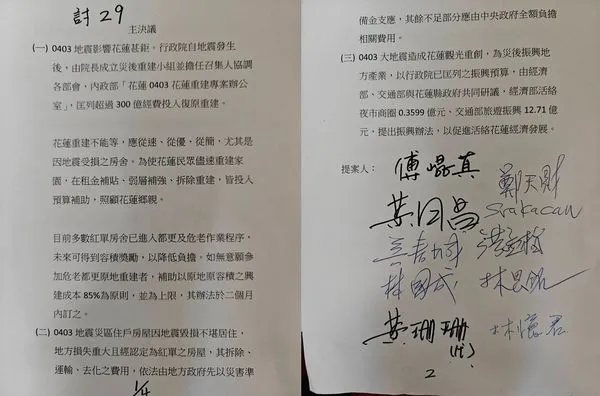 討29
主決議
(一) 0403 地震影響花蓮甚鉅。行政院自地震發生
後,由院長成立災後重建小組並擔任召集人協調
各部會,內政部「花蓮 0403 花蓮重建專案辦公
室」,匡列超過 300 億經費投入復原重建。
花蓮重建不能等,應從速、從優,從簡,尤其是
因地震受損之房舍。為使花蓮民眾儘速重建家
園,在租金補貼、弱層補強、拆除重建,皆投入
預算補助,照顧花蓮鄉親。
目前多數紅單房舍已進入都更及危老作業程序,
未來可得到容積獎勵,以降低負擔。如無意願參
加危老都更原地重建者,補助以原地原容積之興
建成本 85%為原則,並為上限,其辦法於二個月
內訂之。
(二) 0403 地震災區住戶房屋因地震毀損不堪居住,
地方損失重大且經認定為紅單之房屋,其拆除、
運輸、去化之費用,依法由地方政府先以災害準
備金支應,其餘不足部分應由中央政府全額負擔
相關費用。
(三) 0403 大地震造成花蓮觀光重創,為災後振興地
方產業,以行政院已匡列之振興預算,由經濟
部、交通部與花蓮縣政府共同研議,經濟部活絡
夜市商圈 0.3599 億元、交通部旅遊振興 12.71 億
元,提出振興辦法,以促進活絡花蓮經濟發展。
提案人:
傅崐萁
鄭天財
Sra Kacaw
葉元之
林國成
林思銘
黃珊珊
(代)
林憶君
2